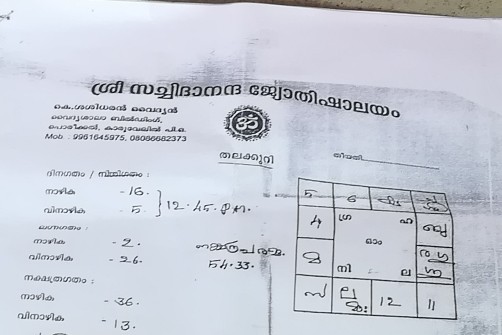 ശ്രീ സച്ചിദാനന്ദ ജ്യോതിഷാലയം
കെ.ശശിധരൻ വൈദ്യൻ
വൈദ്യശാല ബിൽഡിംഗ്,
പൊരീക്കൽ, കാരുവേലിൽ പി.ഒ.
Mob : 9961645975, 08086682373
ॐ
തലക്കുറി
തീയതി
ദിനഗതം / നിശിഗതം :
നാഴിക - 16.
വിനാഴിക - 5. } 12.45. P.M.
ലഗ്നഗതം :
നാഴിക - 2.
വിനാഴിക - 26.
54.33.
നക്ഷത്രഗതം :
നാഴിക - 36.
വിനാഴിക - 13.
5 6
4 ഗ്ര ഹ
ഓം
നി ല
12 11